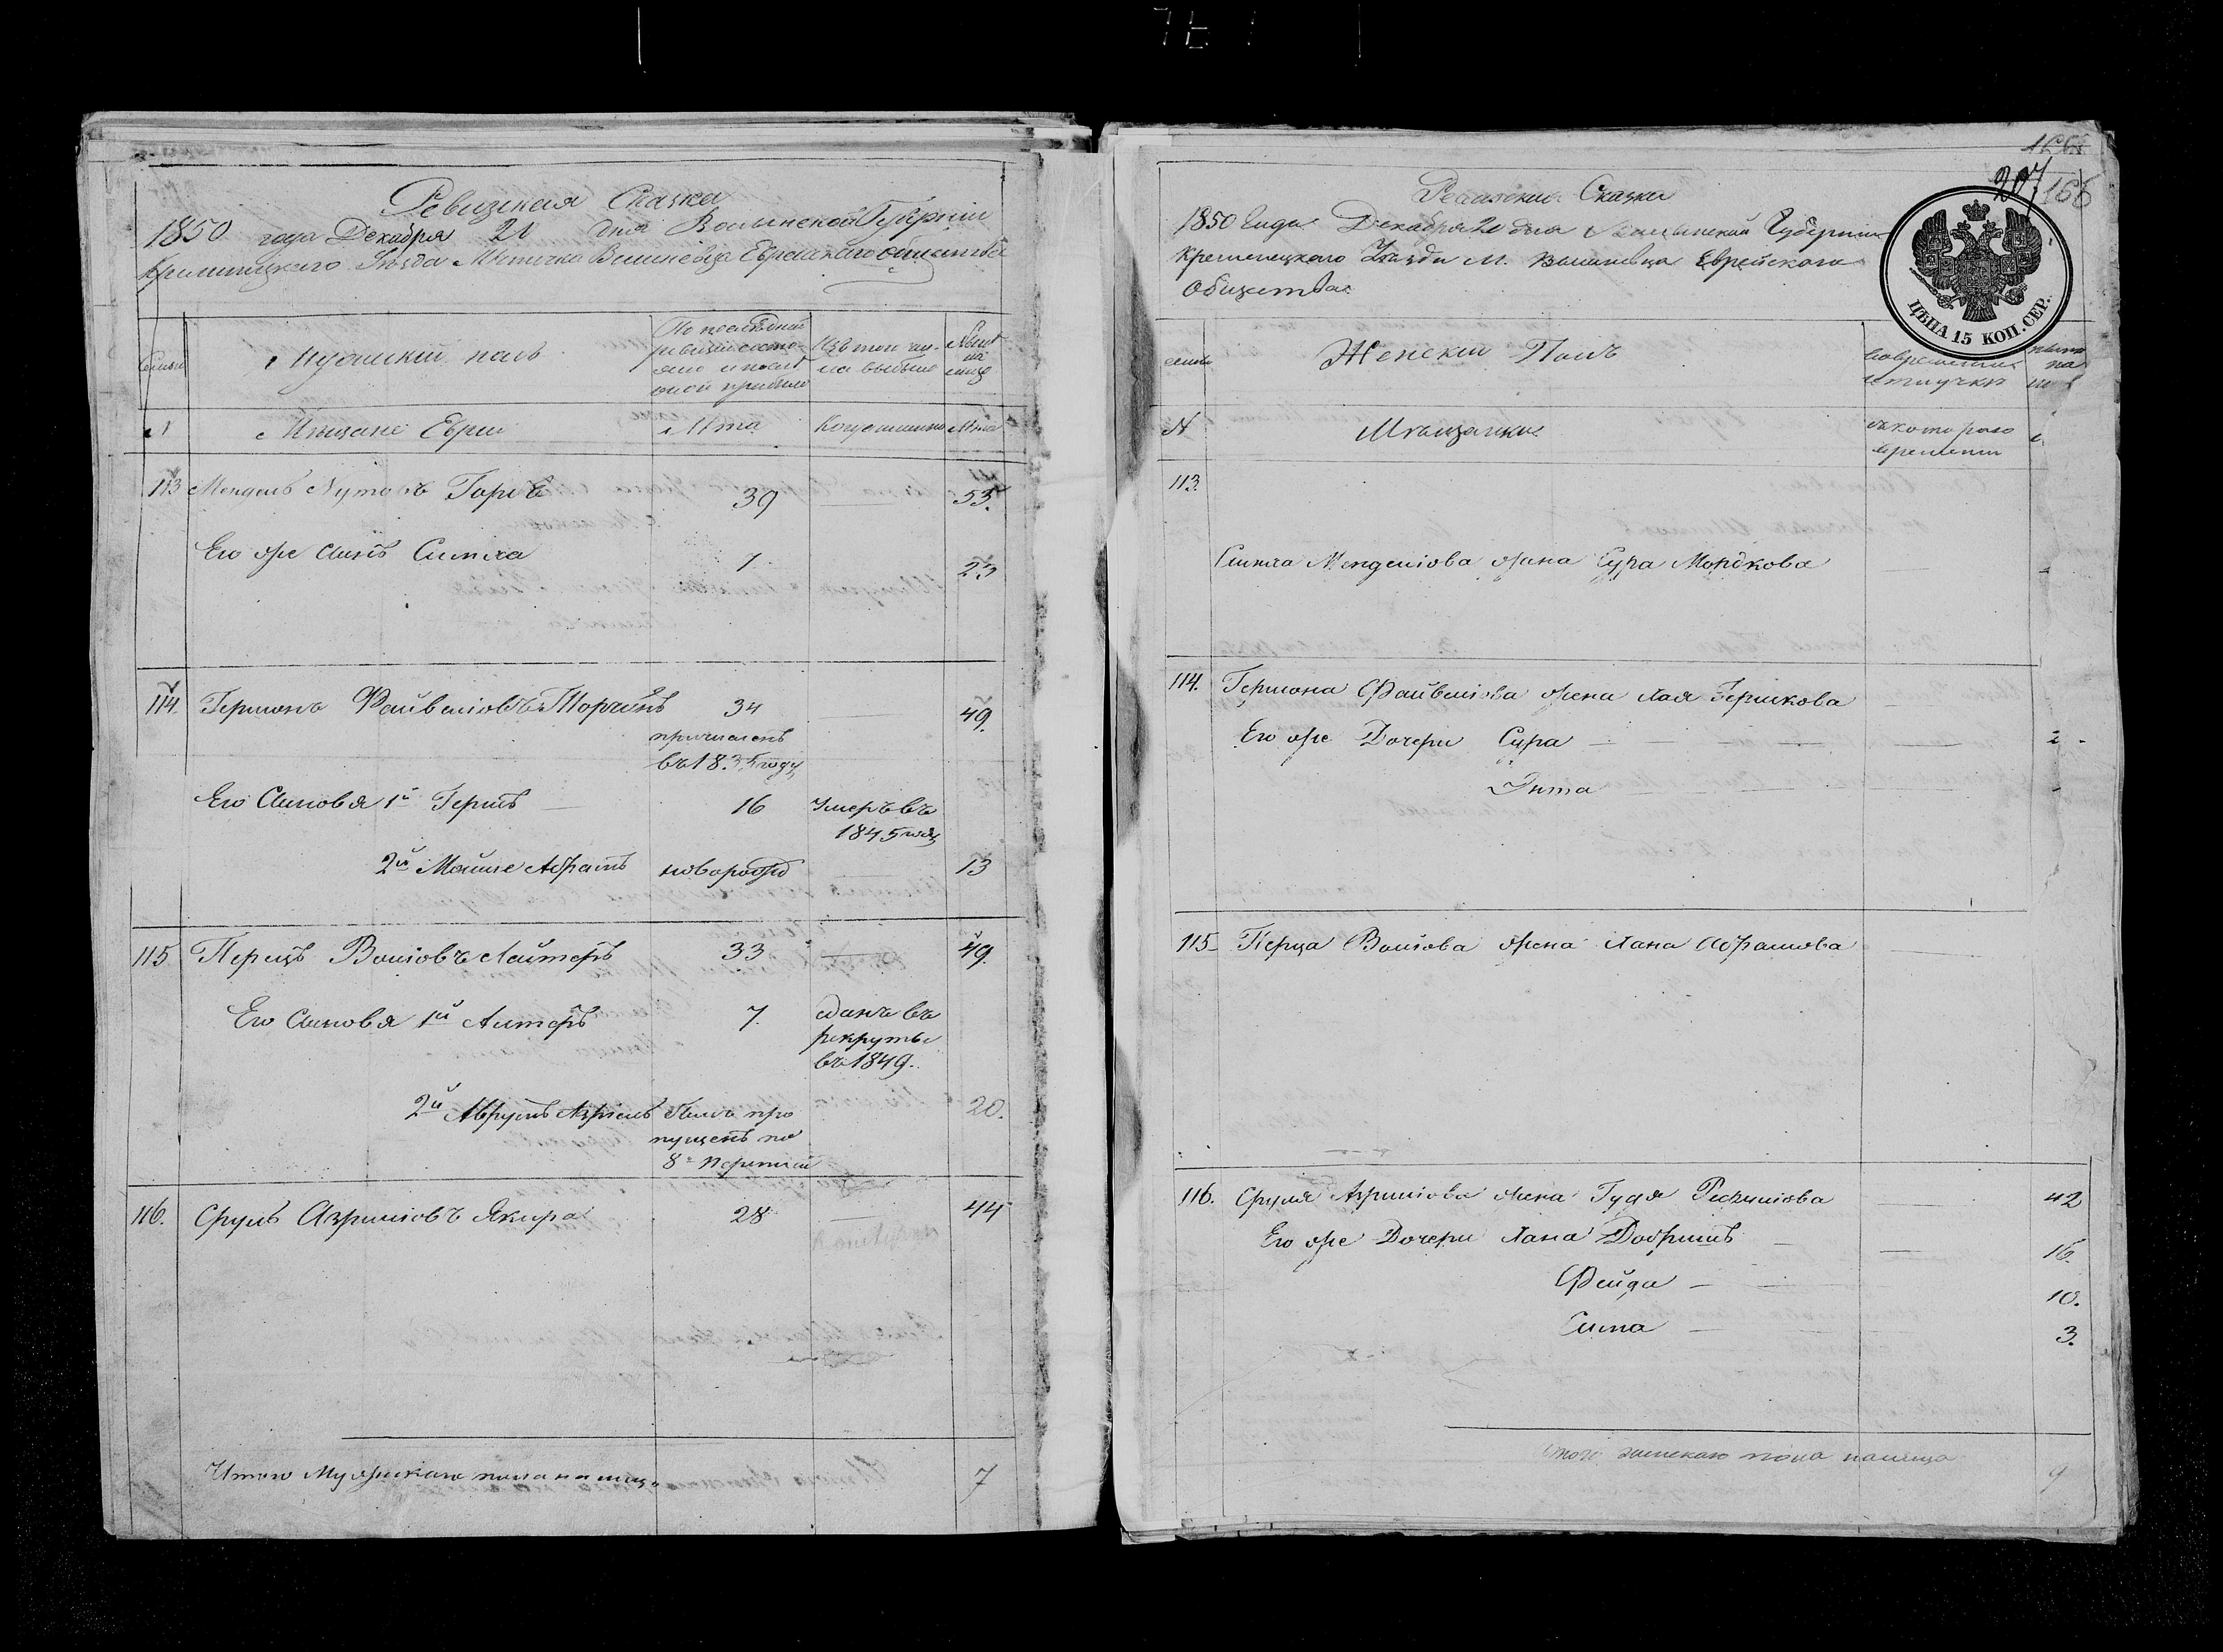 Ревизская Сказка
1850 года Декабря 20 дня Волынской Губерніи
Кременецкого Уѣзда Мѣстечка Вишневца Еврейского общества
Семьи
Мужескій полъ
По послѣдней
ревизіи состо-
яло и послѣ
оной прибыло
Изъ того чи-
сла выбыло
Нынѣ
на
лицо
Мѣщане Евреи
Лѣта
Когда именно
Лѣта
113 Мендель Нутовъ 39 — 53.
Его же сынъ Симха 7 23
114. Гершонъ Файвелювъ 34 — 49.
причисленъ
въ 1835 году
Его Сыновья 1й Гершъ 16 Умеръ въ
1845 году
2й Мойше Абрамъ новорожд — 13
115 Перецъ Волювъ Лейтеръ 33 — 49.
Его Сыновья 1й Алтеръ 7. сданъ въ
рекруты
въ 1849.
2й Аврумъ Азріель былъ про 20.
пущенъ по
8й переписи
116. Сруль Азрилювъ Якира 28 — 44
Итого Мужескаго пола на лицо 7
207
166
Ревизская Сказка
1850 Года Декабря 20 дня Волынской Губерніи
Кременецкого Уѣзда М. Вишневца Еврейского
Общества
ЦѢНА 15 КОП. СЕР.
семьи
Женскій Полъ
Во временной
отлучкѣ
№
Мѣщанки
съ котораго
времени
113.
Симха Менделіова жена Сура Мордкова —
114. Гершона Файвеліова жена Хая Гершкова —
Его же Дочери Сура —
Гита
115 Перца Воліова жена Хана Абрамова —
116. Сруля Азриліова жена Гудя 42
Его же Дочери Хана Добришъ — 16.
Фейга — 10.
Сима — 3.
Итого женскаго пола налицо 9